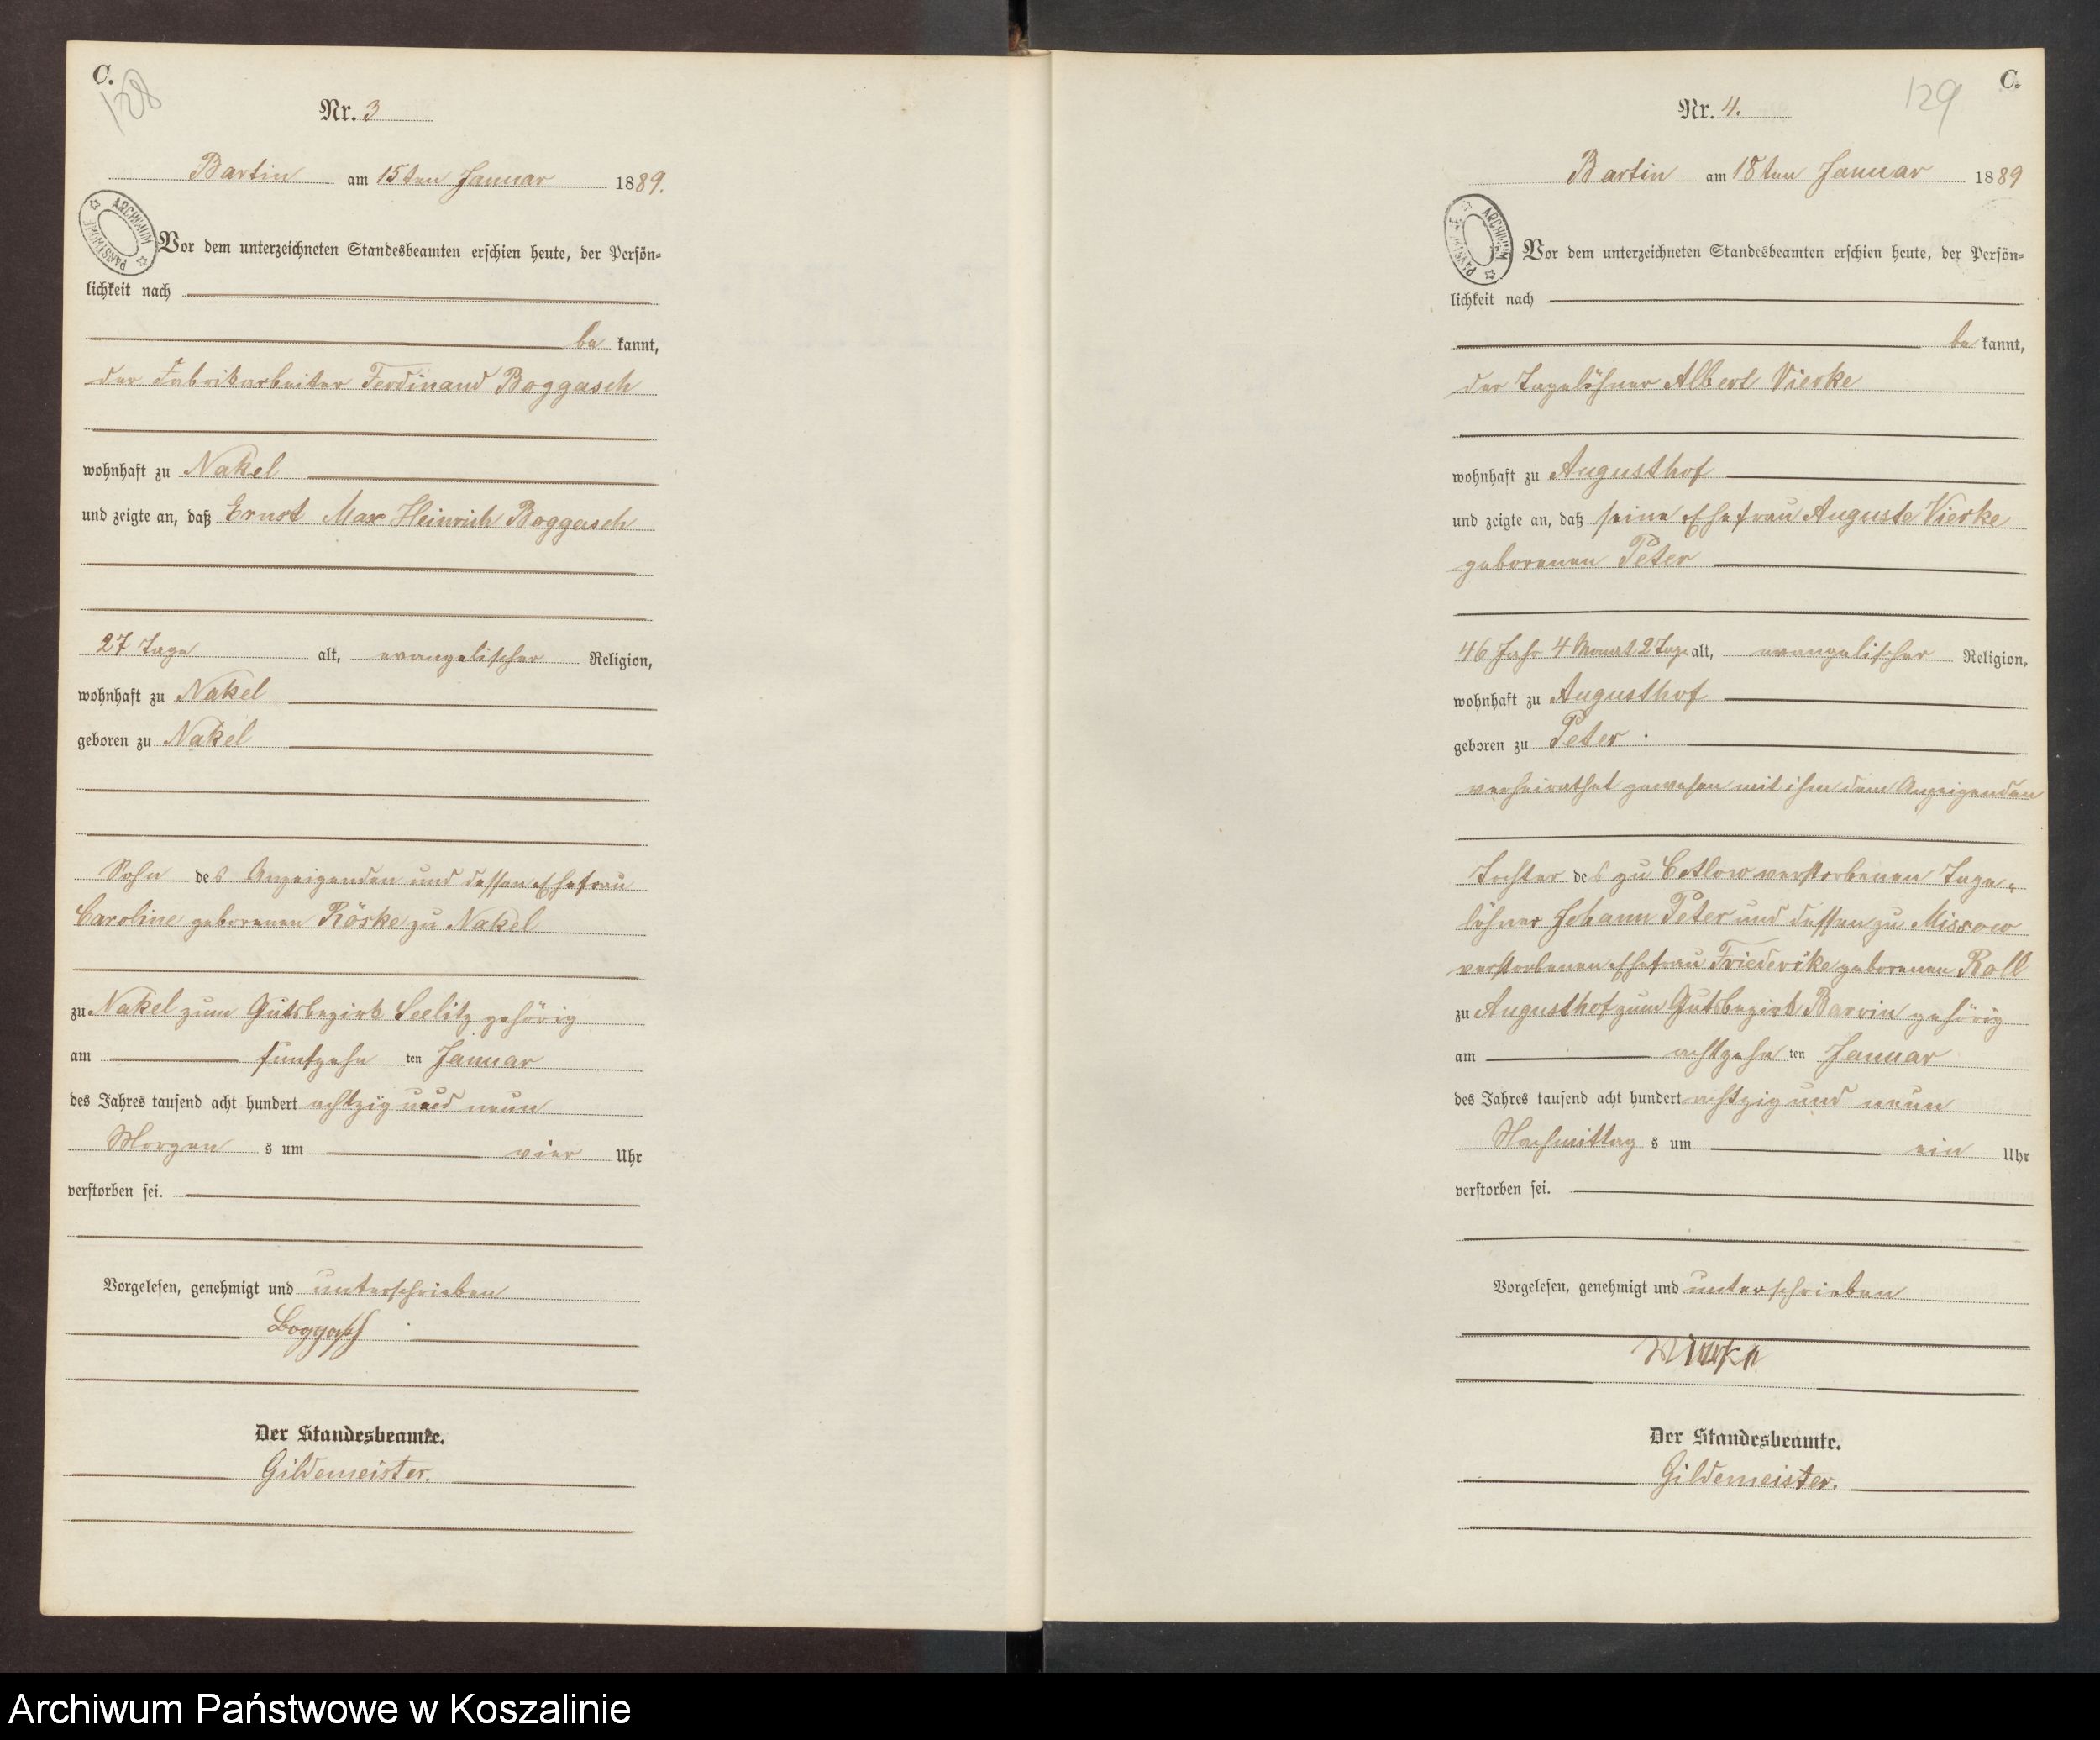 C.
128
Nr. 3
Bartin am 15ten Januar 1889.
ARCHIWUM PAŃSTWOWE
Vor dem unterzeichneten Standesbeamten erschien heute, der Persön=
lichkeit nach
be kannt,
der Fabrikarbeiter Ferdinand Boggasch
wohnhaft zu Nakel
und zeigte an, daß Ernst Max Heinrich Boggasch
27 Tage alt, evangelischer Religion,
wohnhaft zu Nakel
geboren zu Nakel
Sohn des Anzeigenden und dessen Ehefrau
Caroline geborenen Röske zu Nakel
zu Nakel zum Gutsbezirk Seelitz gehörig
am fünfzehn ten Januar
des Jahres tausend acht hundert achtzig und neun
Morgen s um vier Uhr
verstorben sei.
Vorgelesen, genehmigt und unterschrieben
Boggasch
Der Standesbeamte.
Gildemeister.
C.
129
Nr. 4.
Bartin am 18ten Januar 1889
ARCHIWUM PAŃSTWOWE
Vor dem unterzeichneten Standesbeamten erschien heute, der Persön=
lichkeit nach
be kannt,
der Tagelöhner Albert Vierke
wohnhaft zu Augusthof
und zeigte an, daß seine Ehefrau Auguste Vierke
geborenen Peter
46 Jahr 4 Monat 2 Tage alt, evangelischer Religion,
wohnhaft zu Augusthof
geboren zu Peter .
verheirathet gewesen mit ihm dem Anzeigenden
Tochter des zu Cetlow verstorbenen Tage=
löhner Johann Peter und dessen zu Missow
verstorbenen Ehefrau Friederike geborenen Roll
zu Augusthof zum Gutsbezirk Barvin gehörig
am achtzehn ten Januar
des Jahres tausend acht hundert achtzig und neun
Nachmittag s um ein Uhr
verstorben sei.
Vorgelesen, genehmigt und unterschrieben
Der Standesbeamte.
Gildemeister.
Archiwum Państwowe w Koszalinie